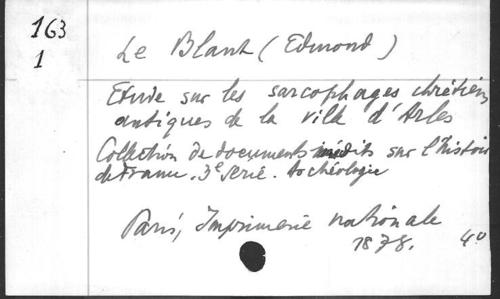 163
1
Le Blant (Edmond)
Etude sur les sarcophages chrétiens
antiques de la ville d'Arles
Collection de documents inédits sur l'histoire
de France. 3e série. Archéologie
Paris, Imprimerie nationale
1878. 4o